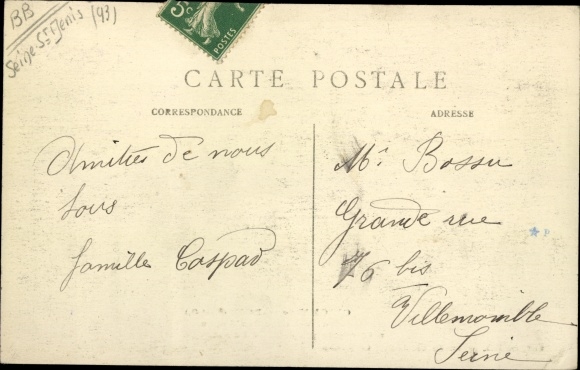 BB
Seine-St Denis (93)
5c
POSTES
CARTE POSTALE
CORRESPONDANCE
ADRESSE
Amitiés de nous
tous
famille Caspad
Mr. Bossu
Grande rue
76 bis
Villemomble
Seine
P